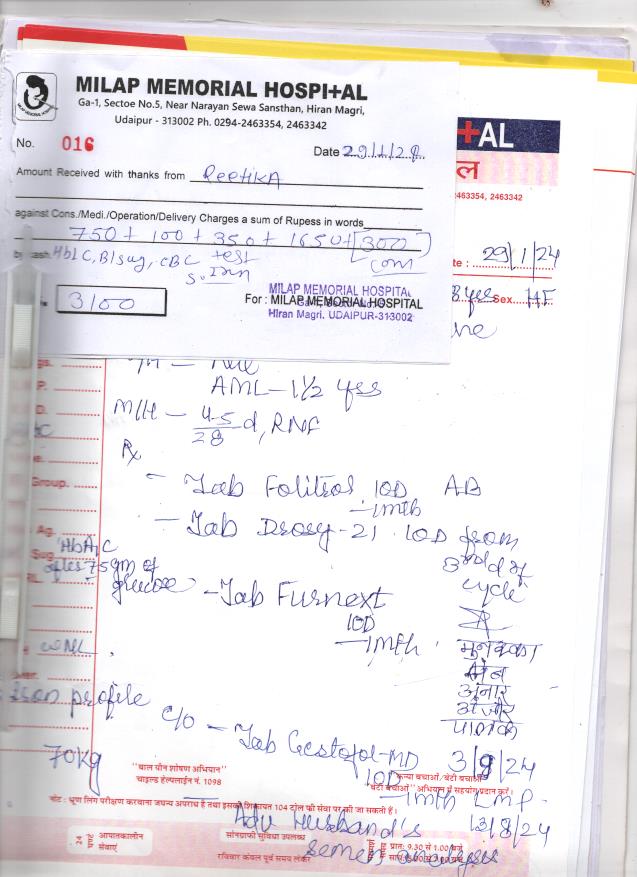 MILAP MEMORIAL HOSPITAL
Ga-1, Sectoe No.5, Near Narayan Sewa Sansthan, Hiran Magri,
Udaipur - 313002 Ph. 0294-2463354, 2463342
No. 016
Date 29/1/24
Amount Received with thanks from REETIKA
against Cons./Medi./Operation/Delivery Charges a sum of Rupess in words
750 + 100 + 350 + 1650 + 300
by cash. Hb1C, Blsug, CBC test
3100
For : MILAP MEMORIAL HOSPITAL
MILAP MEMORIAL HOSPITAL
Hiran Magri, UDAIPUR-313002
AL
ल
63354, 2463342
ate : 29/1/24
yrs Sex
AML - 1 1/2 yrs
M/H - 4-5/28 d, RNF
Rx
- Tab Folitros 1OD AD
- 1mth
- Tab Drosy-21 1OD from
3rd d of
cycle
Group.
Ag.
Sug
HbA1C
after 75gm of
glucose
- Tab Furnext
1OD
- 1mth
मुनक्का
सेब
अनार
अंजीर
पालक
WNL
Iron profile
C/O - Tab Gestofol-MD
1OD
- 1mth
3/9/24
LMP -
13/8/24
70kg
"बाल यौन शोषण अभियान"
चाइल्ड हेल्पलाईन नं. 1098
कन्या बचाओ/ बेटी बचाओ
"बेटी बचाओ" अभियान में सहयोग प्रदान करें।
नोट : भ्रूण लिंग परीक्षण करवाना जघन्य अपराध है तथा इसकी शिकायत 104 टोल फ्री सेवा पर की जा सकती है।
- Adv Husband's
semen analysis
24 घण्टे
आपातकालीन
सेवाएं
सोनोग्राफी सुविधा उपलब्ध
रविवार केवल पूर्व समय लेकर
प्रातः 9.30 से 1.00 बजे